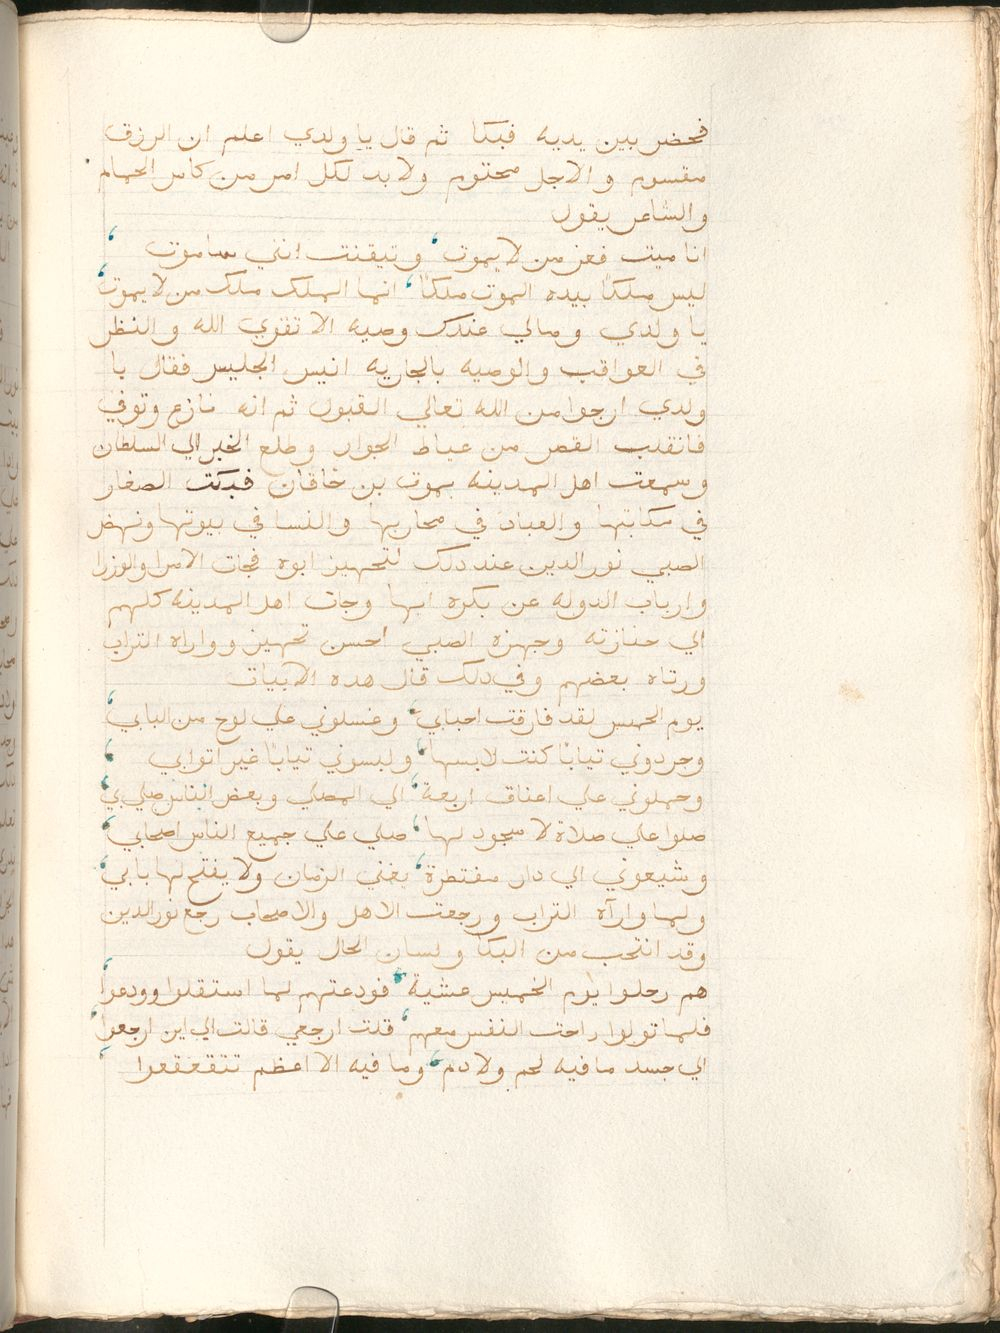 فحضر بين يديه فبكا ثم قال يا ولدي اعلم ان الرزق
مقسوم والاجل محتوم ولا بد لكل امر من كاس الحمام
والشاعر يقول
انا ميت فعز من لا يموت، وتيقنت انني ساموت،
ليس ملكًا بيده الموت ملكًا، انما الملك ملك من لا يموت،
يا ولدي ومالي عندك وصيه الا تقوي الله والنظر
في العواقب والوصيه بالجاريه انيس الجليس فقال يا
ولدي ارجوا من الله تعالي القبول ثم انه نازع وتوفي
فانقلب القصر من عياط الجوار وطلع الخبر الي السلطان
وسمعت اهل المدينه بموت بن خاقان فبكت الصغار
في مكاتبها والعباد في محاربها والنسا في بيوتها ونهض
الصبي نور الدين عند دلك لتجهيز ابوه فجات الامرا والوزرا
وارباب الدوله عن بكره ابها وجات اهل المدينه كلهم
الي جنازته وجهزه الصبي احسن تجهيز وواراه التراب
ورتاه بعضهم وفي دلك قال هده الابيات
يوم الخميس لقد فارقت احبابي، وغسلوني علي لوح من البابي،
وجردوني تيابًا كنت لابسها، ولبسوني تيابًا غير اتوابي،
وحملوني علي اعناق اربعة، الي المصلي وبعض الناس صلي بي،
صلوا علي صلاة لا سجود لها، صلي علي جميع الناس اصحابي،
وشيعوني الي دار مقتطرة، يفني الزمان ولا يفتح لها بابي،
ولما وارآه التراب ورجعت الاهل والاصحاب رجع نور الدين
وقد انتحب من البكا ولسان الحال يقول
هم رحلوا يوم الخميس عشية، فودعتهم لما استقلوا وودعوا،
فلما تولوا راحت النفس معهم، قلت ارجعي قالت الي اين ارجعوا،
الي جسد ما فيه لحم ولا دم، وما فيه الا اعظم تتقعقعوا،